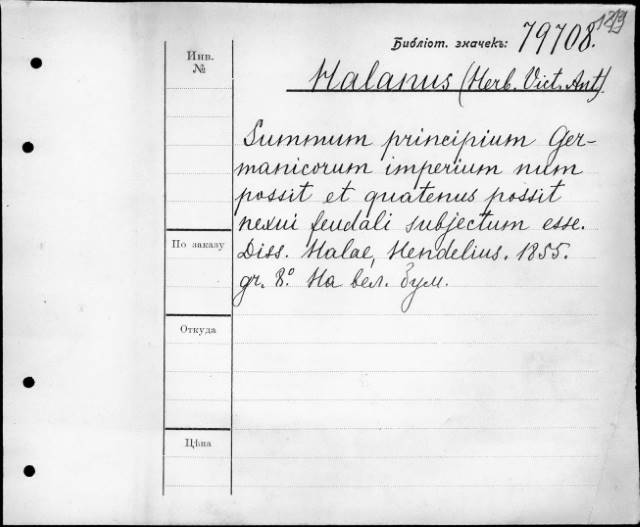 Библіот. значекъ: 79708.
Инв.
№
Halanus (Herb. Vict. Ant).
Summum principium Ger-
manicorum imperium num
possit et quatenus possit
nexui feudali subjectum esse.
Diss. Halae, Hendelius. 1855.
gr. 8.° На вел. бум.
По заказу
Откуда
Цѣна